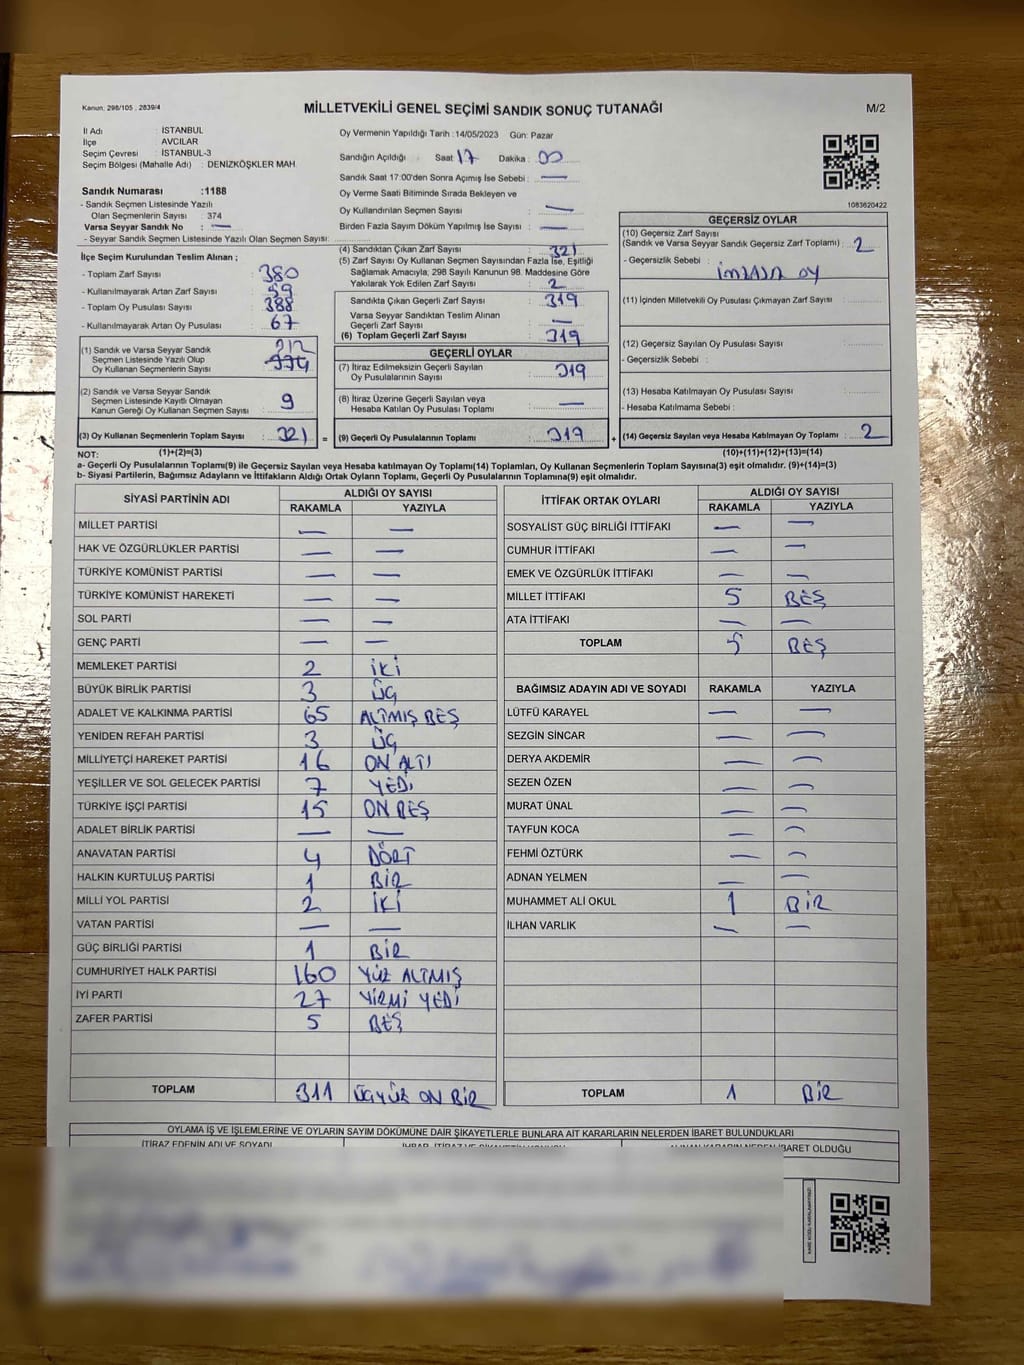 Kanun, 298/105 , 2839/4
MİLLETVEKİLİ GENEL SEÇİMİ SANDIK SONUÇ TUTANAĞI
M/2
İl Adı : İSTANBUL
İlçe AVCILAR
Seçim Çevresi : İSTANBUL-3
Seçim Bölgesi (Mahalle Adı) : DENİZKÖŞKLER MAH.
Sandık Numarası :1188
- Sandık Seçmen Listesinde Yazılı
Olan Seçmenlerin Sayısı : 374
Varsa Seyyar Sandık No : —
- Seyyar Sandık Seçmen Listesinde Yazılı Olan Seçmen Sayısı:
Oy Vermenin Yapıldığı Tarih :14/05/2023 Gün: Pazar
Sandığın Açıldığı : Saat 17 Dakika : 00
Sandık Saat 17:00'den Sonra Açımış İse Sebebi : —
Oy Verme Saati Bitiminde Sırada Bekleyen ve
Oy Kullandırılan Seçmen Sayısı : —
Birden Fazla Sayım Döküm Yapılmış İse Sayısı : —
1083620422
İlçe Seçim Kurulundan Teslim Alınan ;
- Toplam Zarf Sayısı : 380
- Kullanılmayarak Artan Zarf Sayısı : 59
- Toplam Oy Pusulası Sayısı : 388
- Kullanılmayarak Artan Oy Pusulası : 67
(1) Sandık ve Varsa Seyyar Sandık
Seçmen Listesinde Yazılı Olup
Oy Kullanan Seçmenlerin Sayısı : 312 374
(2) Sandık ve Varsa Seyyar Sandık
Seçmen Listesinde Kayıtlı Olmayan
Kanun Gereği Oy Kullanan Seçmen Sayısı : 9
(3) Oy Kullanan Seçmenlerin Toplam Sayısı : 321 =
(4) Sandıktan Çıkan Zarf Sayısı : 321
(5) Zarf Sayısı Oy Kullanan Seçmen Sayısından Fazla İse, Eşitliği
Sağlamak Amacıyla; 298 Sayılı Kanunun 98. Maddesine Göre
Yakılarak Yok Edilen Zarf Sayısı : 2
Sandıkta Çıkan Geçerli Zarf Sayısı : 319
Varsa Seyyar Sandıktan Teslim Alınan
Geçerli Zarf Sayısı : —
(6) Toplam Geçerli Zarf Sayısı : 319
GEÇERLİ OYLAR
(7) İtiraz Edilmeksizin Geçerli Sayılan
Oy Pusulalarının Sayısı : 319
(8) İtiraz Üzerine Geçerli Sayılan veya
Hesaba Katılan Oy Pusulası Toplamı : —
(9) Geçerli Oy Pusulalarının Toplamı : 319 +
GEÇERSİZ OYLAR
(10) Geçersiz Zarf Sayısı
(Sandık ve Varsa Seyyar Sandık Geçersiz Zarf Toplamı) : 2
- Geçersizlik Sebebi : İMZALI OY
(11) İçinden Milletvekili Oy Pusulası Çıkmayan Zarf Sayısı :
(12) Geçersiz Sayılan Oy Pusulası Sayısı :
- Geçersizlik Sebebi :
(13) Hesaba Katılmayan Oy Pusulası Sayısı :
- Hesaba Katılmama Sebebi :
(14) Geçersiz Sayılan veya Hesaba Katılmayan Oy Toplamı : 2
NOT: (1)+(2)=(3)
(10)+(11)+(12)+(13)=(14)
a- Geçerli Oy Pusulalarının Toplamı(9) ile Geçersiz Sayılan veya Hesaba katılmayan Oy Toplamı(14) Toplamları, Oy Kullanan Seçmenlerin Toplam Sayısına(3) eşit olmalıdır. (9)+(14)=(3)
b- Siyasi Partilerin, Bağımsız Adayların ve İttifakların Aldığı Ortak Oyların Toplamı, Geçerli Oy Pusulalarının Toplamına(9) eşit olmalıdır.
SİYASİ PARTİNİN ADI ALDIĞI OY SAYISI
RAKAMLA YAZIYLA
MİLLET PARTİSİ — —
HAK VE ÖZGÜRLÜKLER PARTİSİ — —
TÜRKİYE KOMÜNİST PARTİSİ — —
TÜRKİYE KOMÜNİST HAREKETİ — —
SOL PARTİ — —
GENÇ PARTİ — —
MEMLEKET PARTİSİ 2 İKİ
BÜYÜK BİRLİK PARTİSİ 3 ÜÇ
ADALET VE KALKINMA PARTİSİ 65 ALTMIŞ BEŞ
YENİDEN REFAH PARTİSİ 3 ÜÇ
MİLLİYETÇİ HAREKET PARTİSİ 16 ON ALTI
YEŞİLLER VE SOL GELECEK PARTİSİ 7 YEDİ
TÜRKİYE İŞÇİ PARTİSİ 15 ON BEŞ
ADALET BİRLİK PARTİSİ — —
ANAVATAN PARTİSİ 4 DÖRT
HALKIN KURTULUŞ PARTİSİ 1 BİR
MİLLİ YOL PARTİSİ 2 İKİ
VATAN PARTİSİ — —
GÜÇ BİRLİĞİ PARTİSİ 1 BİR
CUMHURİYET HALK PARTİSİ 160 YÜZ ALTMIŞ
İYİ PARTİ 27 YİRMİ YEDİ
ZAFER PARTİSİ 5 BEŞ
TOPLAM 311 ÜÇYÜZ ON BİR
İTTİFAK ORTAK OYLARI ALDIĞI OY SAYISI
RAKAMLA YAZIYLA
SOSYALİST GÜÇ BİRLİĞİ İTTİFAKI — —
CUMHUR İTTİFAKI — —
EMEK VE ÖZGÜRLÜK İTTİFAKI — —
MİLLET İTTİFAKI 5 BEŞ
ATA İTTİFAKI — —
TOPLAM 5 BEŞ
BAĞIMSIZ ADAYIN ADI VE SOYADI RAKAMLA YAZIYLA
LÜTFÜ KARAYEL — —
SEZGİN SİNCAR — —
DERYA AKDEMİR — —
SEZEN ÖZEN — —
MURAT ÜNAL — —
TAYFUN KOCA — —
FEHMİ ÖZTÜRK — —
ADNAN YELMEN — —
MUHAMMET ALİ OKUL 1 BİR
İLHAN VARLIK — —
TOPLAM 1 BİR
OYLAMA İŞ VE İŞLEMLERİNE VE OYLARIN SAYIM DÖKÜMÜNE DAİR ŞİKAYETLERLE BUNLARA AİT KARARLARIN NELERDEN İBARET BULUNDUKLARI
İTİRAZ EDENİN ADI VE SOYADI
İBARET OLDUĞU